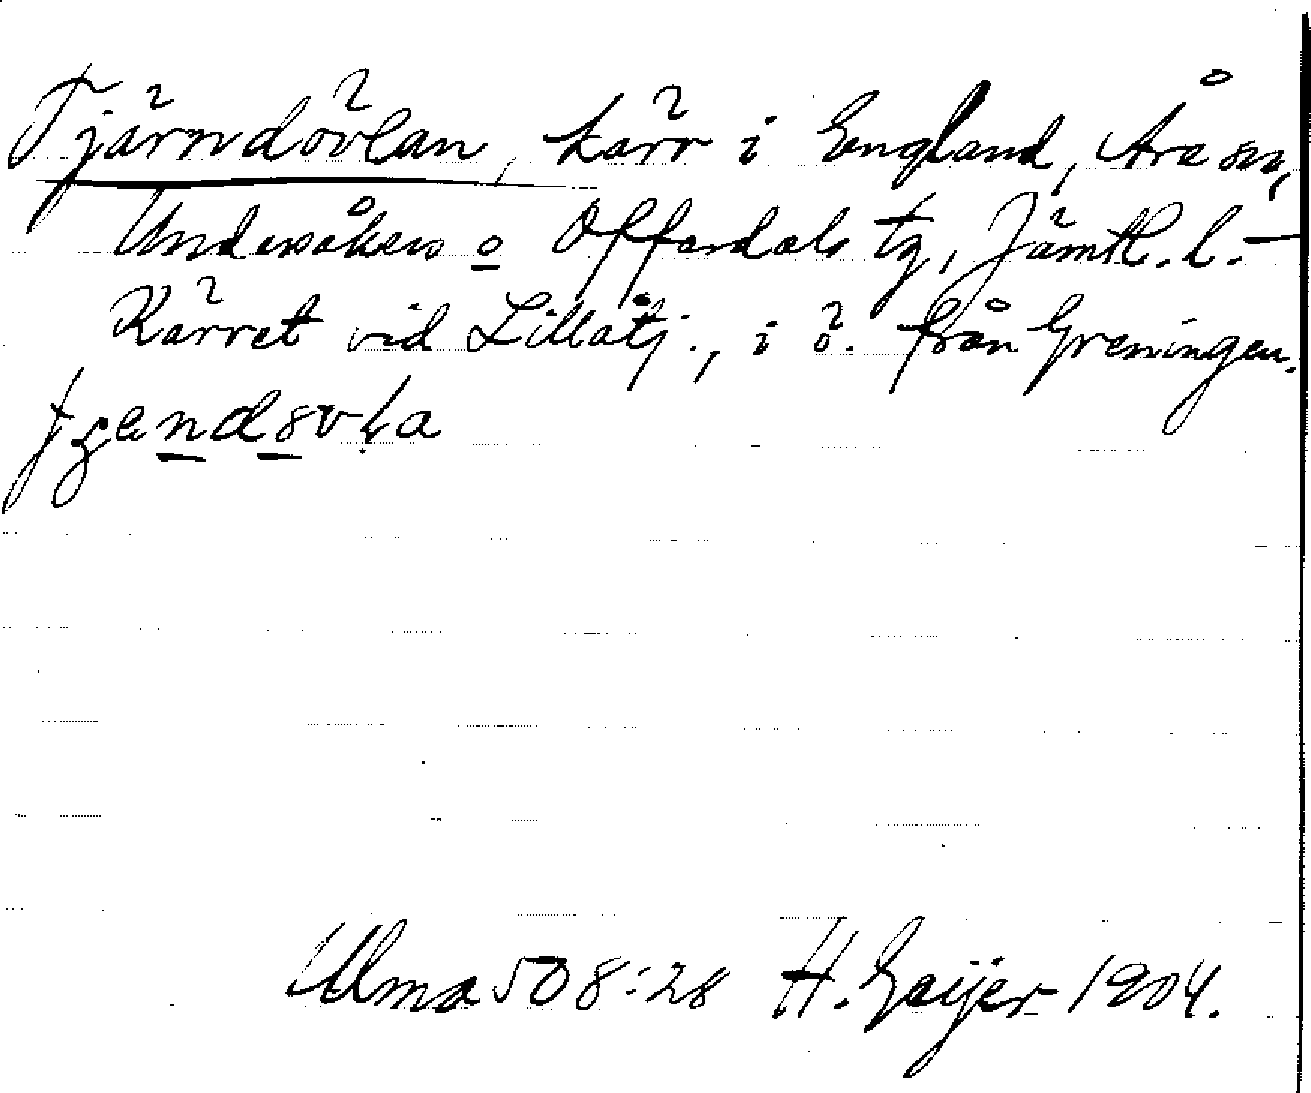 Tjärndövlan, kärr i England, Åre sn,
Undersåkers o Offerdals tg, Jämtl. l. –
Kärret vid Lillåtj., i ö. från Greningen.
Ulma 508:28 H. Geijer 1904.